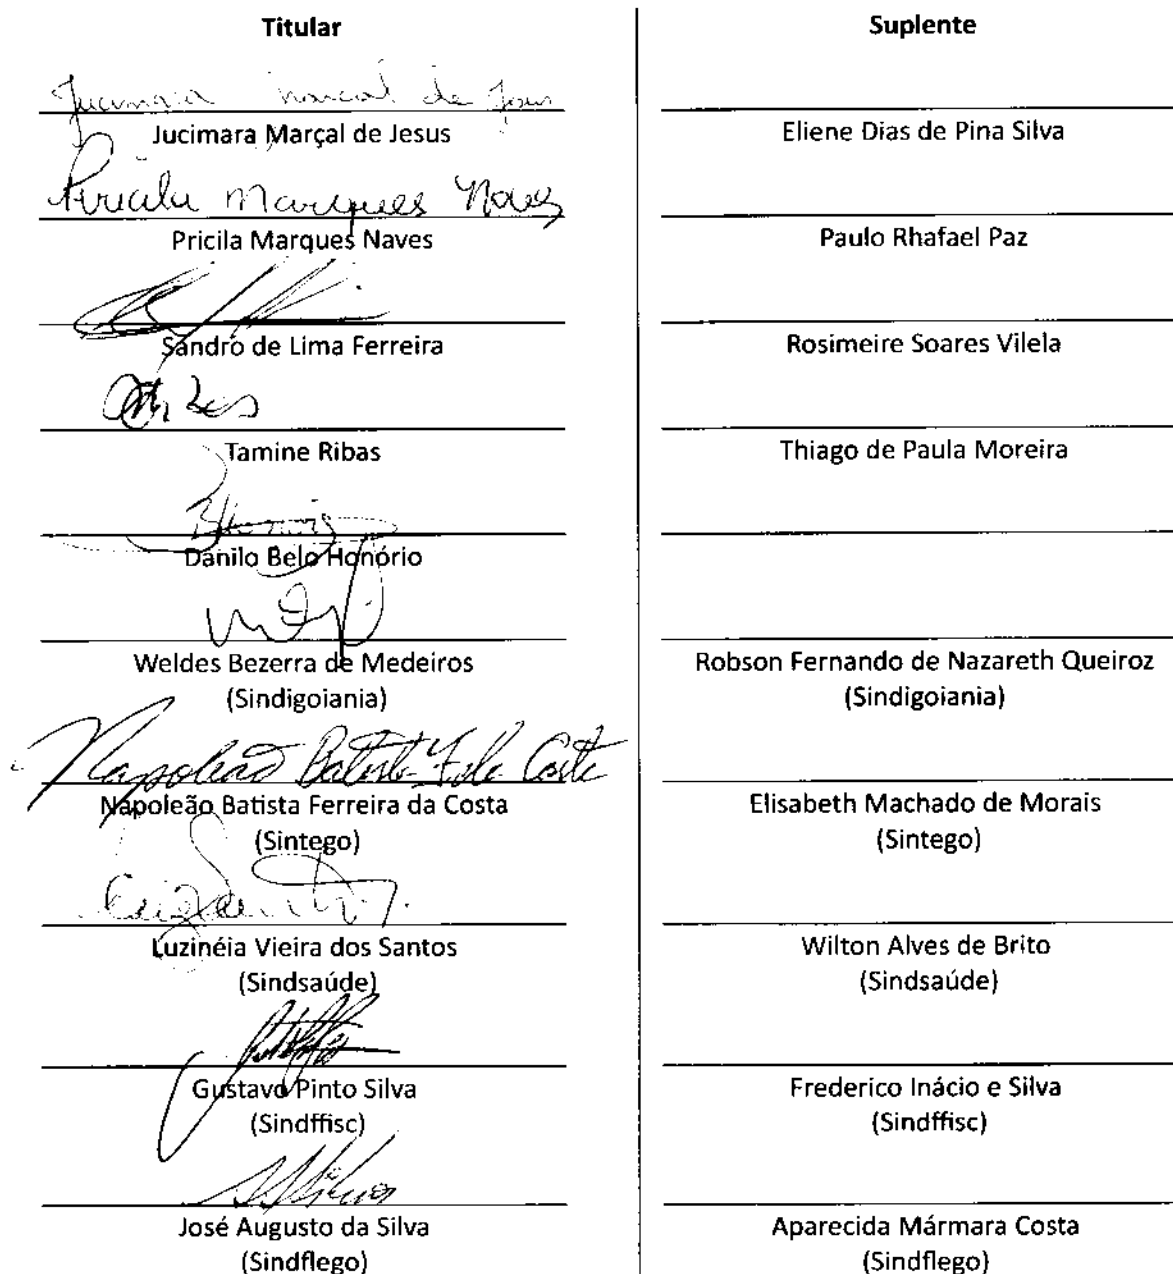 Titular
Jucimara Marçal de Jesus
Jucimara Marçal de Jesus
Pricila Marques Naves
Pricila Marques Naves
Sandro de Lima Ferreira
Tamine Ribas
Danilo Belo Honório
Weldes Bezerra de Medeiros
(Sindigoiania)
Napoleão Batista F. da Costa
Napoleão Batista Ferreira da Costa
(Sintego)
Luzinéia Vieira dos Santos
(Sindsaúde)
Gustavo Pinto Silva
(Sindffisc)
José Augusto da Silva
(Sindflego)
Suplente
Eliene Dias de Pina Silva
Paulo Rhafael Paz
Rosimeire Soares Vilela
Thiago de Paula Moreira
Robson Fernando de Nazareth Queiroz
(Sindigoiania)
Elisabeth Machado de Morais
(Sintego)
Wilton Alves de Brito
(Sindsaúde)
Frederico Inácio e Silva
(Sindffisc)
Aparecida Mármara Costa
(Sindflego)